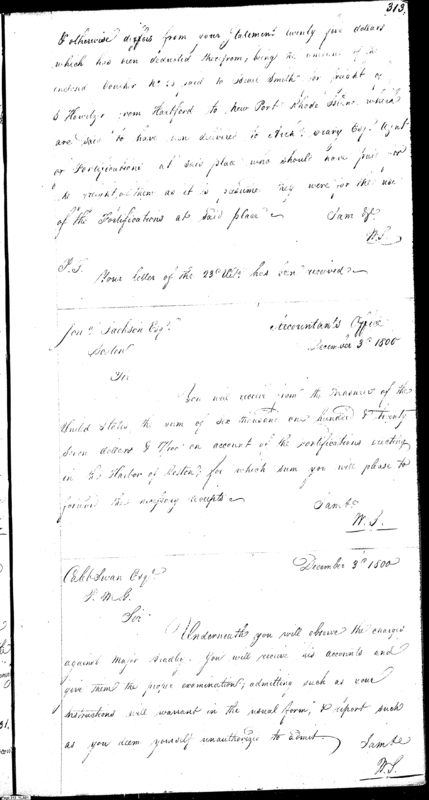 313.
& otherwise differs from your Statement twenty five dollars
which has been deducted therefrom, being the amount of the
enclosed voucher No: paid to Smith for freight of
3 Howitzs from Hartford to New Port Rhode Island, which
are said to have been delivered to Arch. Crary Esqr. Agent
for Fortifications at said place who should have paid for
the freight of them as it is presumed they were for the use
of the Fortifications at said place
I am &c.
W.S.
P.S.
Your letter of the 23d Ulto. has been received
Jona. Jackson Esqr.
Accountants Office
Boston
December 3rd 1800
Sir
You will receive from the Treasurer of the
United States, the sum of six thousand one hundred & twenty
seven dollars & /100 on account of the fortifications erecting
in the Harbor of Boston; for which sum you will please to
forward the necessary receipts
I am &c
W.S.
Caleb Swan Esqr.
December 3rd 1800
P.M.G.
Sir
Underneath you will observe the charges
against Major Bradley. You will receive his accounts and
give them the proper examination; admitting such as your
instructions will warrant in the usual form, & report such
as you deem yourself unauthorized to admit.
I am &c
W.S.